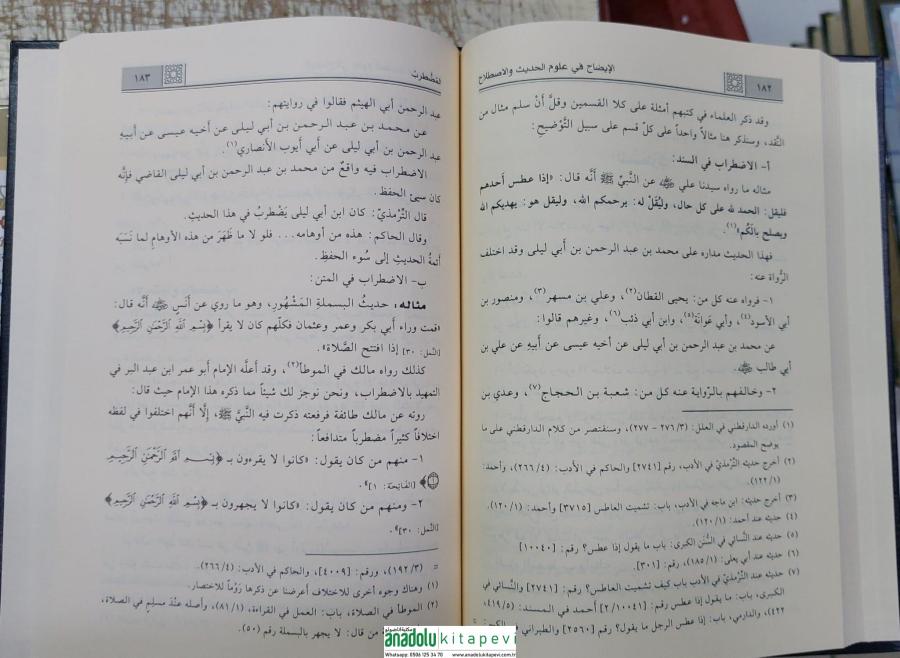 ١٨٢
الإيضاح في علوم الحديث والاصطلاح
وقد ذكر العلماء في كتبهم أمثلة على كلا القسمين وقلَّ أنْ سلم مثال من
النَّقد، وسنذكر هنا مثالاً واحداً على كلّ قسم على سبيل التَّوْضيحِ:
أ- الاضطراب في السند:
مثاله ما رواه سيدنا علي عن النَّبيِّ ﷺ أنَّه قال: «إذا عطس أحدهم
فليقل: الحمد لله على كل حال، وليُقَلْ له: يرحمكم الله، وليقل هو: يهديكم الله
ويصلح بالَكُم»(١).
فهذا الحديث مداره على محمد بن عبد الرحمن بن أبي ليلى وقد اختلف
الرُّواة عنه:
١- فرواه عنه كل من: يحيى القطان(٢)، وعلي بن مسهر(٣)، ومنصور بن
أبي الأسود(٤)، وأبي عَوانَة(٥)، وابن أبي ذئب(٦)، وغيرهم قالوا:
عن محمد بن عبد الرحمن بن أبي ليلى عن أخيه عيسى عن أبيهِ عن علي بن
أبي طالب
٢- وخالفهم بالرِّواية عنه كل من: شعبة بن الحجاج(٧)، وعدي بن
(١) أورده الدارقطني في العلل: (٢٧٦/٣ - ٢٧٧)، وسنقتصر من كلام الدارقطني على ما
يوضح المقصود.
(٢) أخرج حديثه التِّرْمذيّ في الأدب، رقم [٢٧٤١] والحاكم في الأدب: (٢٦٦/٤)، وأحمد:
(١٢٢/١).
(٣) أخرج حديثه: ابن ماجه في الأدب، باب: تشميت العاطس [٣٧١٥] وأحمد: (١٢٠/١).
(٤) حديثه عند أحمد: (١٢٠/١).
(٥) حديثه عند النَّسائي في السُّنَن الكبرى: باب ما يقول إذا عطس؟ رقم: [١٠٠٤٠]
(٦) حديثه عند أبي يعلى: (١٨٥/١)، رقم: [٣٠١].
(٧) حديثه عند التِّرْمذيّ في الأدب باب كيف تشميت العاطس؟ رقم: [٢٧٤١] والنَّسائي في
الكبرى، باب: ما يقول إذا عطس رقم: [٢/١٠٠٤١] أحمد في المسند: (٤١٩/٥،
٤٢٢)، والدارمي، باب: إذا عطس الرجل ما يقول؟ رقم [٢٥٦٠] والطبراني
١٨٣
المُضْطرِبُ
عبد الرحمن أبي الهيثم فقالوا في روايتهم:
عن محمد بن عبد الرحمن بن أبي ليلى عن أخيه عيسى عن أبيهِ
عبد الرحمن بن أبي ليلى عن أبي أيوب الأنصاري(١).
الاضطراب فيه واقعٌ من محمد بن عبد الرحمن بن أبي ليلى القاضي فإنَّه
كان سيئ الحفظ.
قال التِّرْمذيّ: كان ابن أبي ليلى يَضْطربُ في هذا الحديثِ.
وقال الحاكم: هذه من أوهامه... فلو لا ما ظَهَرَ من هذه الأوهامِ لما نَسَبَه
أئمةُ الحديثِ إلى سُوء الحفظِ.
ب- الاضطراب في المتن:
مثاله: حديثُ البسملةِ المَشْهُورِ، وهو ما روي عن أنَسٍ أنَّه قال:
«قمت وراء أبي بكر وعمر وعثمان فكلّهم كان لا يقرأ ﴿بِسْمِ اللَّهِ الرَّحْمَٰنِ الرَّحِيمِ﴾
[النمل: ٣٠] إذا افتتح الصَّلاة».
كذلك رواه مالك في الموطأ(٢)، وقد أعلَّه الإمام أبو عمر ابن عبد البر في
التمهيد بالاضطراب، ونحن نوجز لك شيئاً مما ذكره هذا الإمام حيث قال:
روته عن مالك طائفة فرفعته ذكرت فيه النَّبيَّ ﷺ، إلَّا أنَّهم اختلفوا في لفظه
اختلافاً كثيراً مضطرباً متدافعاً:
١- منهم من كان يقول: «كانوا لا يقرءون بـ ﴿بِسْمِ اللَّهِ الرَّحْمَٰنِ الرَّحِيمِ
﴾ [الفَاتِحَة: ١]».
٢- ومنهم من كان يقول: «كانوا لا يجهرون بـ ﴿بِسْمِ اللَّهِ الرَّحْمَٰنِ الرَّحِيمِ﴾
[النَّمل: ٣٠]».
= (١٩٢/٣)، ورقم: [٤٠٠٩]، والحاكم في الأدب: (٢٦٦/٤).
(١) وهناك وجوه أخرى للاختلاف أعرضنا عن ذكرها رَوْماً للاختصار.
(٢) الموطأ في الصلاة، باب: العمل في القراءة، (٨١/١)، وأصله عند مسلم في الصلاة،
من قال: لا يجهر بالبسملة رقم (٥٠).
anadolu kitapevi
Whatsapp: 0506 125 34 78 www.anadolukitapevi.com.tr